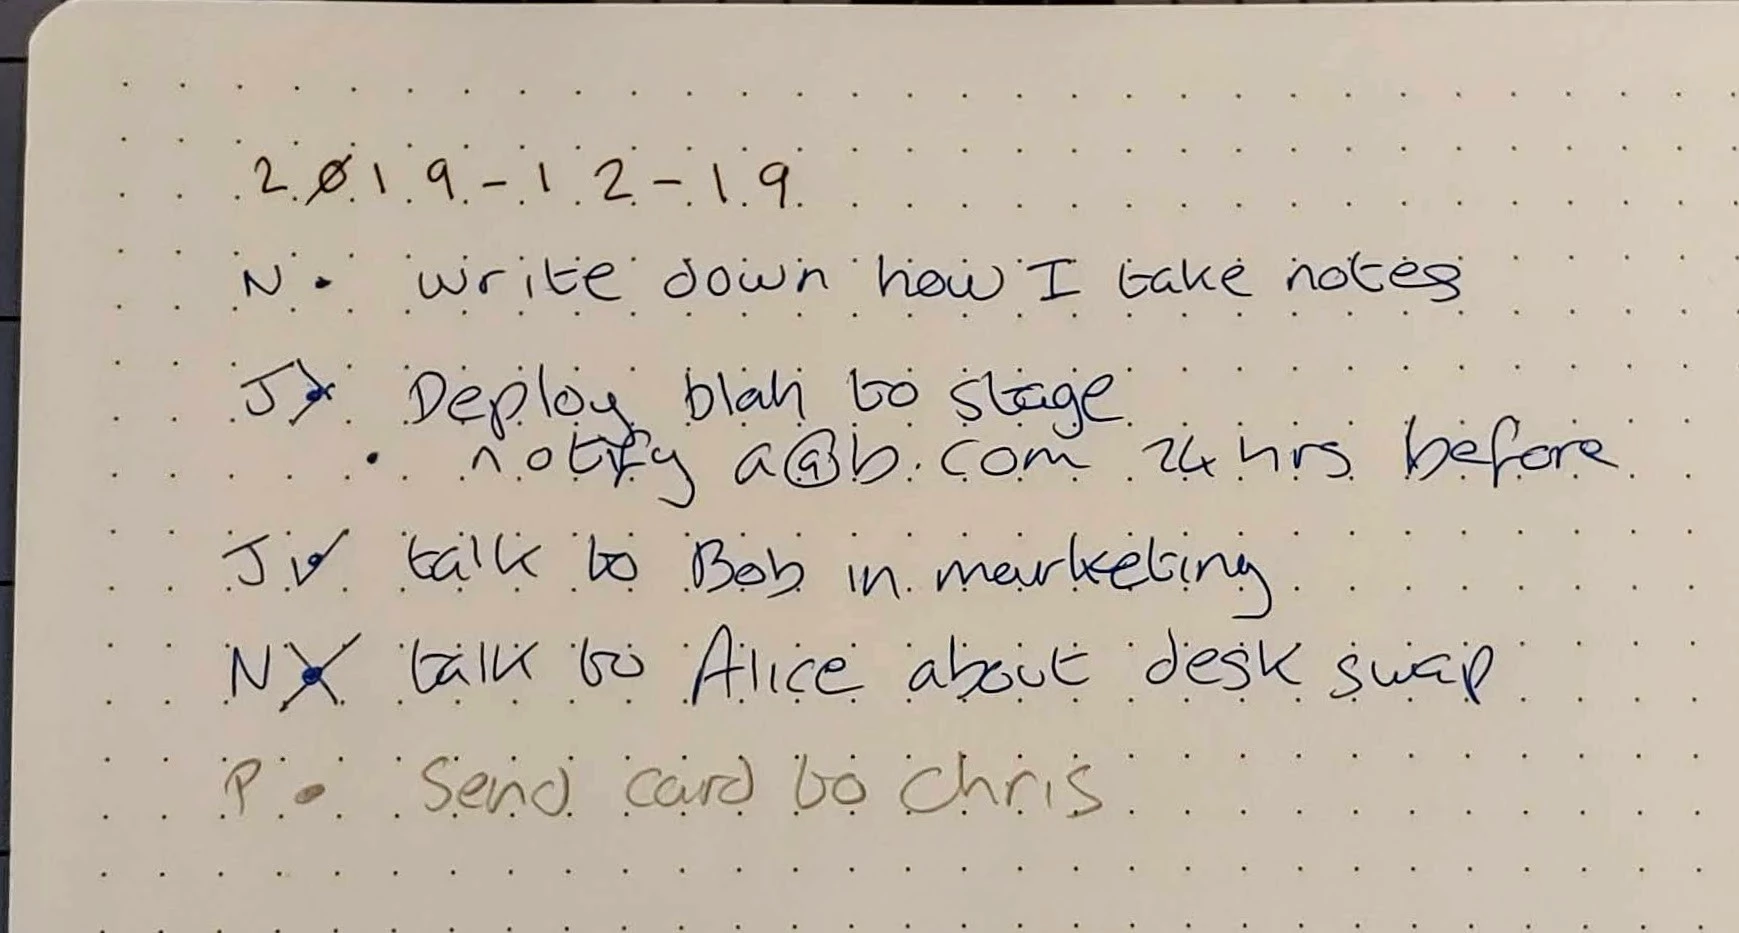 2019-12-19
N • write down how I take notes
J > Deploy blah to stage
• notify a@b.com 24 hrs before
J ✓ talk to Bob in marketing
N X talk to Alice about desk swap
P • Send card to Chris